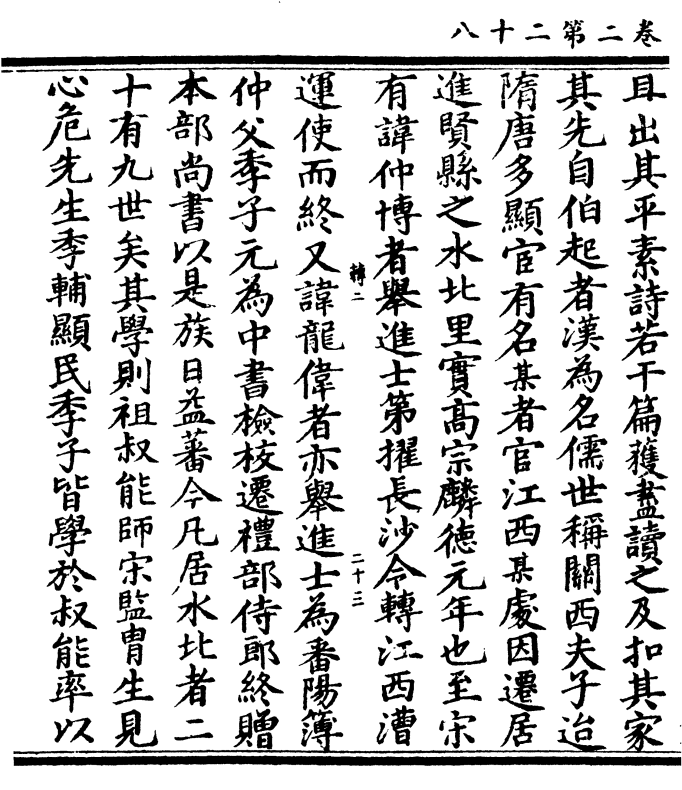 卷二第二十八
且出其平素詩若干篇獲盡讀之及扣其家
其先自伯起者漢為名儒世稱關西夫子迨
隋唐多顯宦有名某者官江西某處因遷居
進賢縣之水北里實高宗麟德元年也至宋
有諱仲博者舉進士第擢長沙令轉江西漕
轉二
二十三
運使而終又諱龍偉者亦舉進士為番陽簿
仲父季子元為中書檢校遷禮部侍郎終贈
本部尚書以是族日益蕃今凡居水北者二
十有九世矣其學則祖叔能師宋監胄生見
心危先生季輔顯民季子皆學於叔能率以